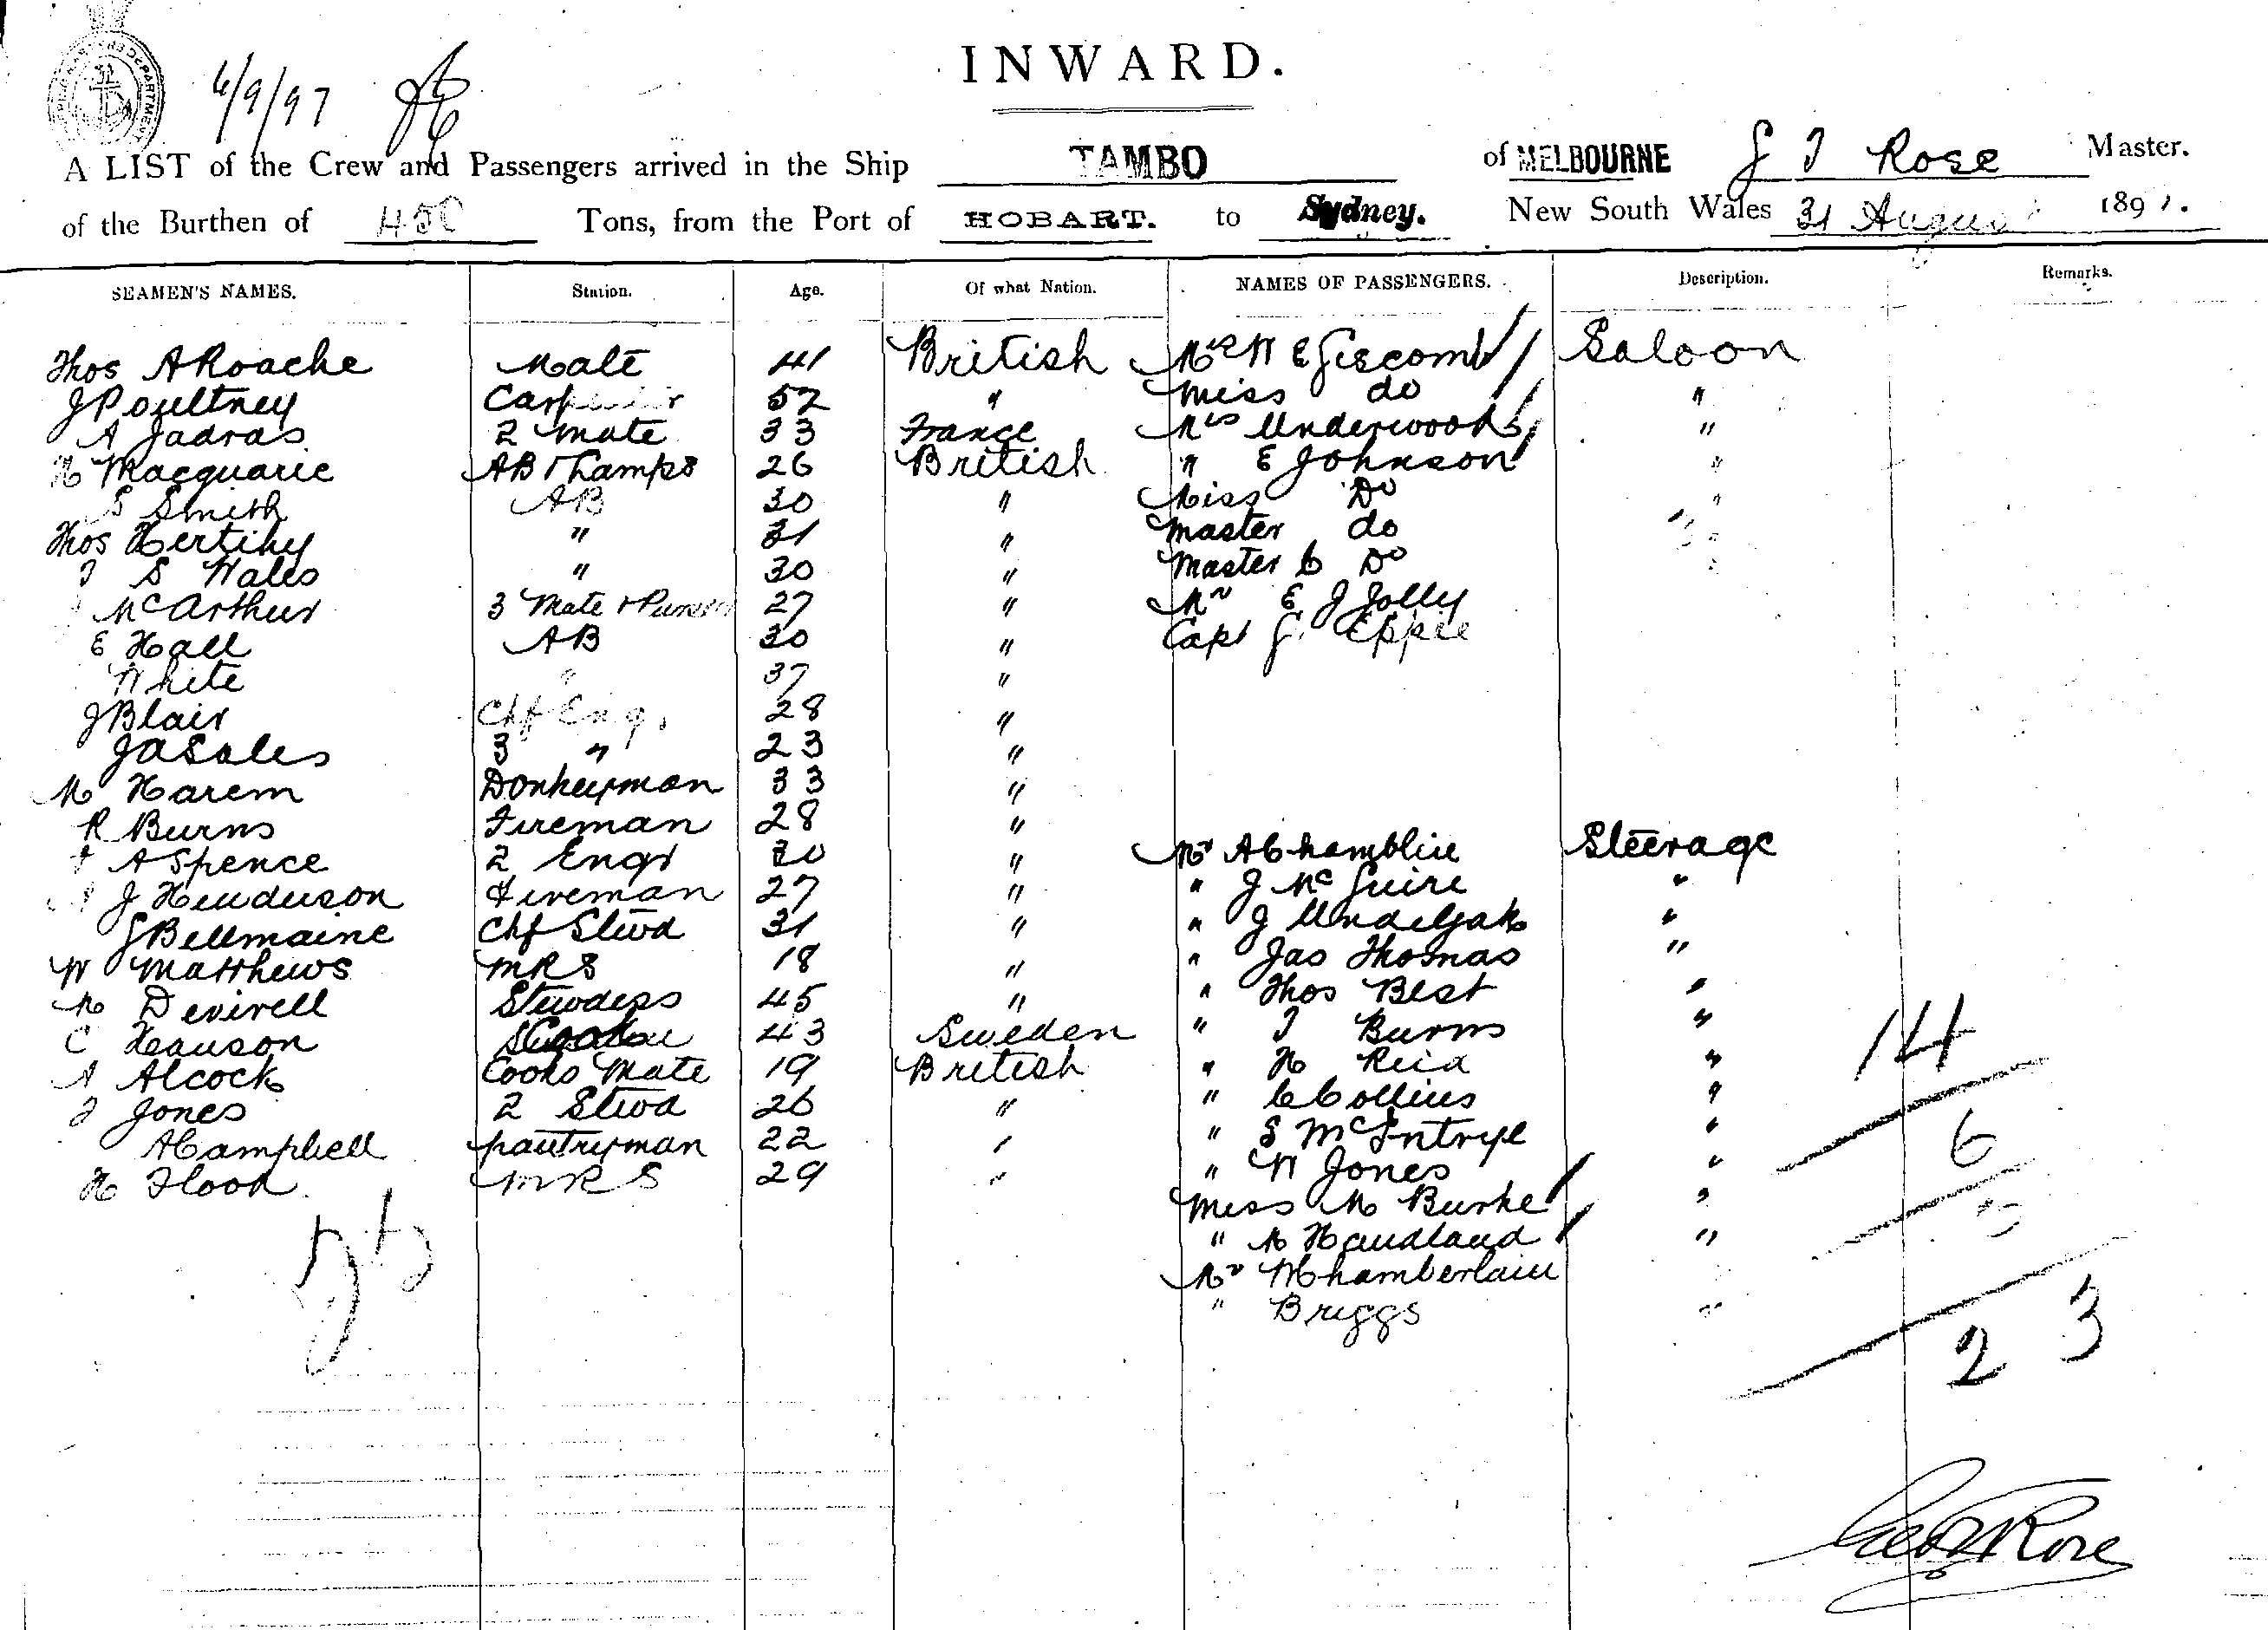 INWARD.
6/9/97
A LIST of the Crew and Passengers arrived in the Ship TAMBO of MELBOURNE G J Rose Master.
of the Burthen of 450 Tons, from the Port of HOBART. to Sydney. New South Wales 31 August 1897.
SEAMEN'S NAMES. Station. Age. Of what Nation. NAMES OF PASSENGERS. Description. Remarks.
Thos A Roache Mate 41 British Mrs W E Giscomb Saloon
J Poultney Carpenter 52 " Miss do "
A Jadras 2 Mate 33 France Mrs Underwood "
H Macquarie AB & Lamps 26 British " E Johnson "
S Smith AB 30 " Miss Do "
Thos Hertihy " 31 " Master do "
J S Wales " 30 " Master C Do
McArthur 3 Mate & Purser 27 " Mr E J Jolly
E Hall AB 30 " Capt G. Eppie
White " 37 "
J Blair Chf Eng. 28 "
J A Scales 3 " 23 "
M Harem Donkeyman 33 "
R Burns Fireman 28 "
A Spence 2 Engr 30 " Mr A Chamblin Steerage
J Henderson Fireman 27 " " J McGuire "
G Bellmaine Chf Stwd 31 " " J "
W Matthews MRS 18 " " Jas Thomas "
M Devirell Stewdess 45 " " Thos Best "
C Hanson 43 Sweden " J Burns "
A Alcock Cooks Mate 19 British " H Reid " 14
J Jones 2 Stwd 26 " " C Collins "
A Campbell pantryman 22 " " S McIntrye " 6
H Flood MRS 29 " " W Jones "
Miss M Burke "
" M Handland " 3
Mr W Chamberlain
" Briggs "
23
Geo J Rose